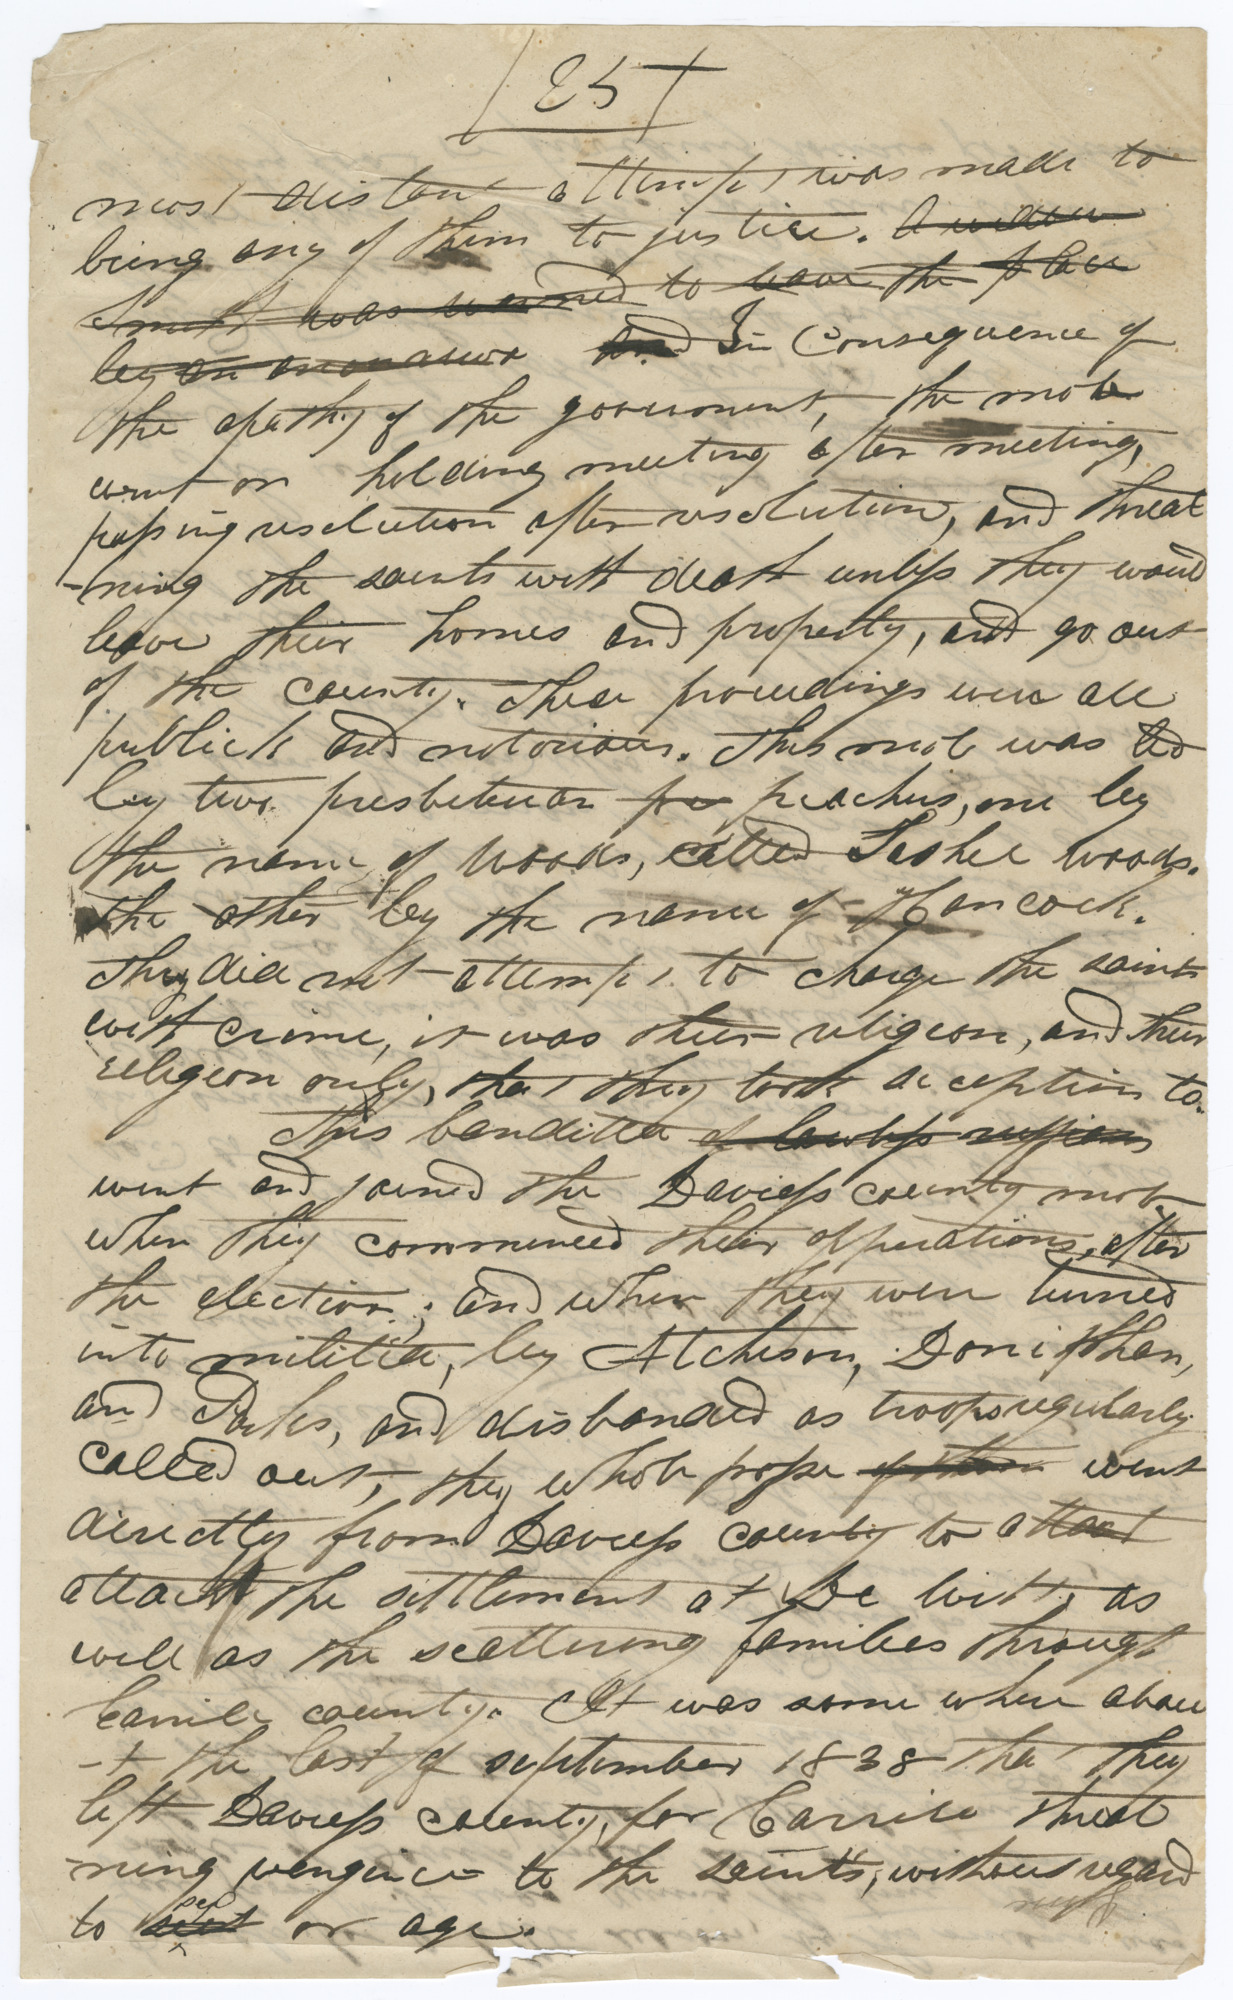 25
most distant attempt was made to
being any of them to justice. A widow
Smith was warned to leave the place
by an anonamus and In consequence of
the apathy of the goverment, the mob
went on holding meeting after meeting,
passing resolution after resolution, and threat
-ning the saints with death unless they would
leave their homes and property, and go out
of the county. These proceedings were all
publick and notorious. This mob was led
by two presbeterian pre preachers, one by
the name of Woods, called Sashel woods.
the other by the name of Hancock.
They did not attempt to charge the saints
with crime, it was their religeon, and their
religeon only, that they took acception to.
This bandittea of lawless ruffians
went and joined the Daviess county mob
when they commenced their opperations, after
the election; and when they were turned
into militia, by Atcheson, Doniphan,
and Parks, and disbanded as troops regularly
called out, they whole posse of them went
directly from Daviess county to attact
attact the settlement at De Witt, as
well as the scattering families through
Carrile county. It was some where abou
-t the last of september 1838 that they
left Daviess county, for Carrile threat
-ning vengince to the saints, without regard
to sect sex or age.